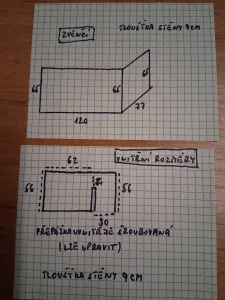 ZVENČÍ
TLOUŠTKA STĚNY 9 CM
65
65
65
77
120
VNITŘNÍ ROZMĚRY
62
56
56
30
PŘEPÁŽKA UVNITŘ JE ŠROUBOVANÁ
(LZE UPRAVIT)
TLOUŠTKA STĚNY 9 CM